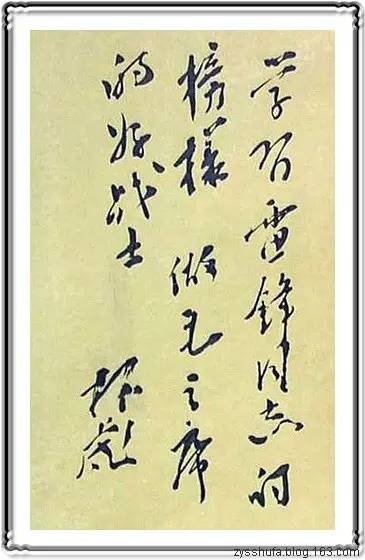 学习雷鋒同志的
榜樣 做毛主席
的好战士
林彪
zysshufa.blog.163.com